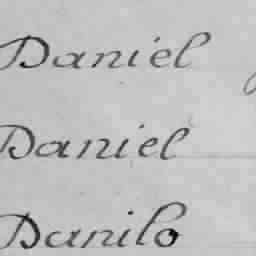 Daniel
Daniel
Danilo